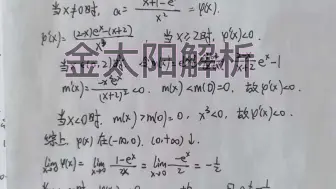 当x≠0时, α = x+1-e^x / x² = φ(x).
φ'(x) = (2-x)e^x-(x+2) / x³ 当x≥2时, φ'(x)<0.
金太阳解析
e^x-1
m'(x) = -x²e^x / (x+2)² <0. m(x)<m(0)=0, 故φ'(x)<0.
当x<0时. m(x)>m(0)=0, x³<0, 故φ'(x)<0.
综上. φ(x)在(-∞,0). (0,+∞)↓.
lim x→0 φ(x) = lim x→0 1-e^x / 2x = lim x→0 -e^x / 2 = -1/2